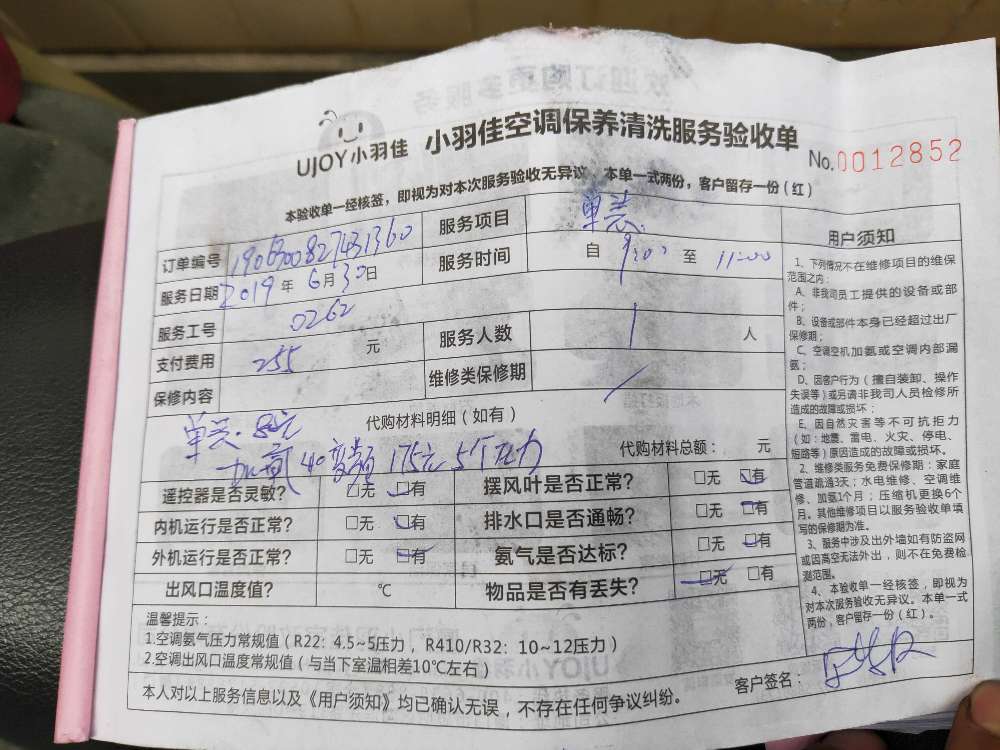 UJOY小羽佳 小羽佳空调保养清洗服务验收单 No.0012852
本验收单一经核签，即视为对本次服务验收无异议，本单一式两份，客户留存一份（红）
订单编号 服务项目 单装
服务日期 2019年6月30日 服务时间 自 9:00 至 11:00
服务工号 0262
支付费用 255 元 服务人数 1 人
保修内容 维修类保修期 /
代购材料明细（如有）
单装 80元
代购材料总额： 元
加氨 40变频 175元 5个压力
遥控器是否灵敏? □无 □有 摆风叶是否正常? □无 □有
内机运行是否正常? □无 □有 排水口是否通畅? □无 □有
外机运行是否正常? □无 □有 氨气是否达标? □无 □有
出风口温度值? ℃ 物品是否有丢失? □无 □有
温馨提示：
1.空调氨气压力常规值（R22：4.5~5压力，R410/R32：10~12压力）
2.空调出风口温度常规值（与当下室温相差10℃左右）
本人对以上服务信息以及《用户须知》均已确认无误，不存在任何争议纠纷。
客户签名：
用户须知
1、下列情况不在维修项目的维保
范围之内：
A、非我司员工提供的设备或部
件；
B、设备或部件本身已经超过出厂
保修期；
C、空调空机加氨或空调内部漏
氨；
D、因客户行为（擅自装卸、操作
失误等）或另请非我司人员检修所
造成的故障或损坏；
E、因自然灾害等不可抗拒力
（如：地震、雷电、火灾、停电、
短路等）原因造成的故障或损坏。
2、维修类服务免费保修期：家庭
管道疏通3天；水电维修、空调维
修、加氨1个月；压缩机更换6个
月。其他维修项目以服务验收单填
写的保修期为准。
3、服务中涉及出外墙如有防盗网
或因高空无法外出，则不在免费检
测范围。
4、本验收单一经核签，即视为
对本次服务验收无异议。本单一式
两份，客户留存一份（红）。